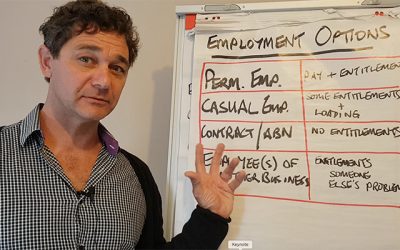 EMPLOYMENT OPTIONS
PERM. EMP.
PAY + ENTITLEMENT
CASUAL EMP.
SOME ENTITLEMENTS
+
LOADING
CONTRACT/ABN
NO ENTITLEMENTS
OF
BUSINESS
ENTITLEMENTS
SOMEONE
ELSE'S PROBLEM
Keynote